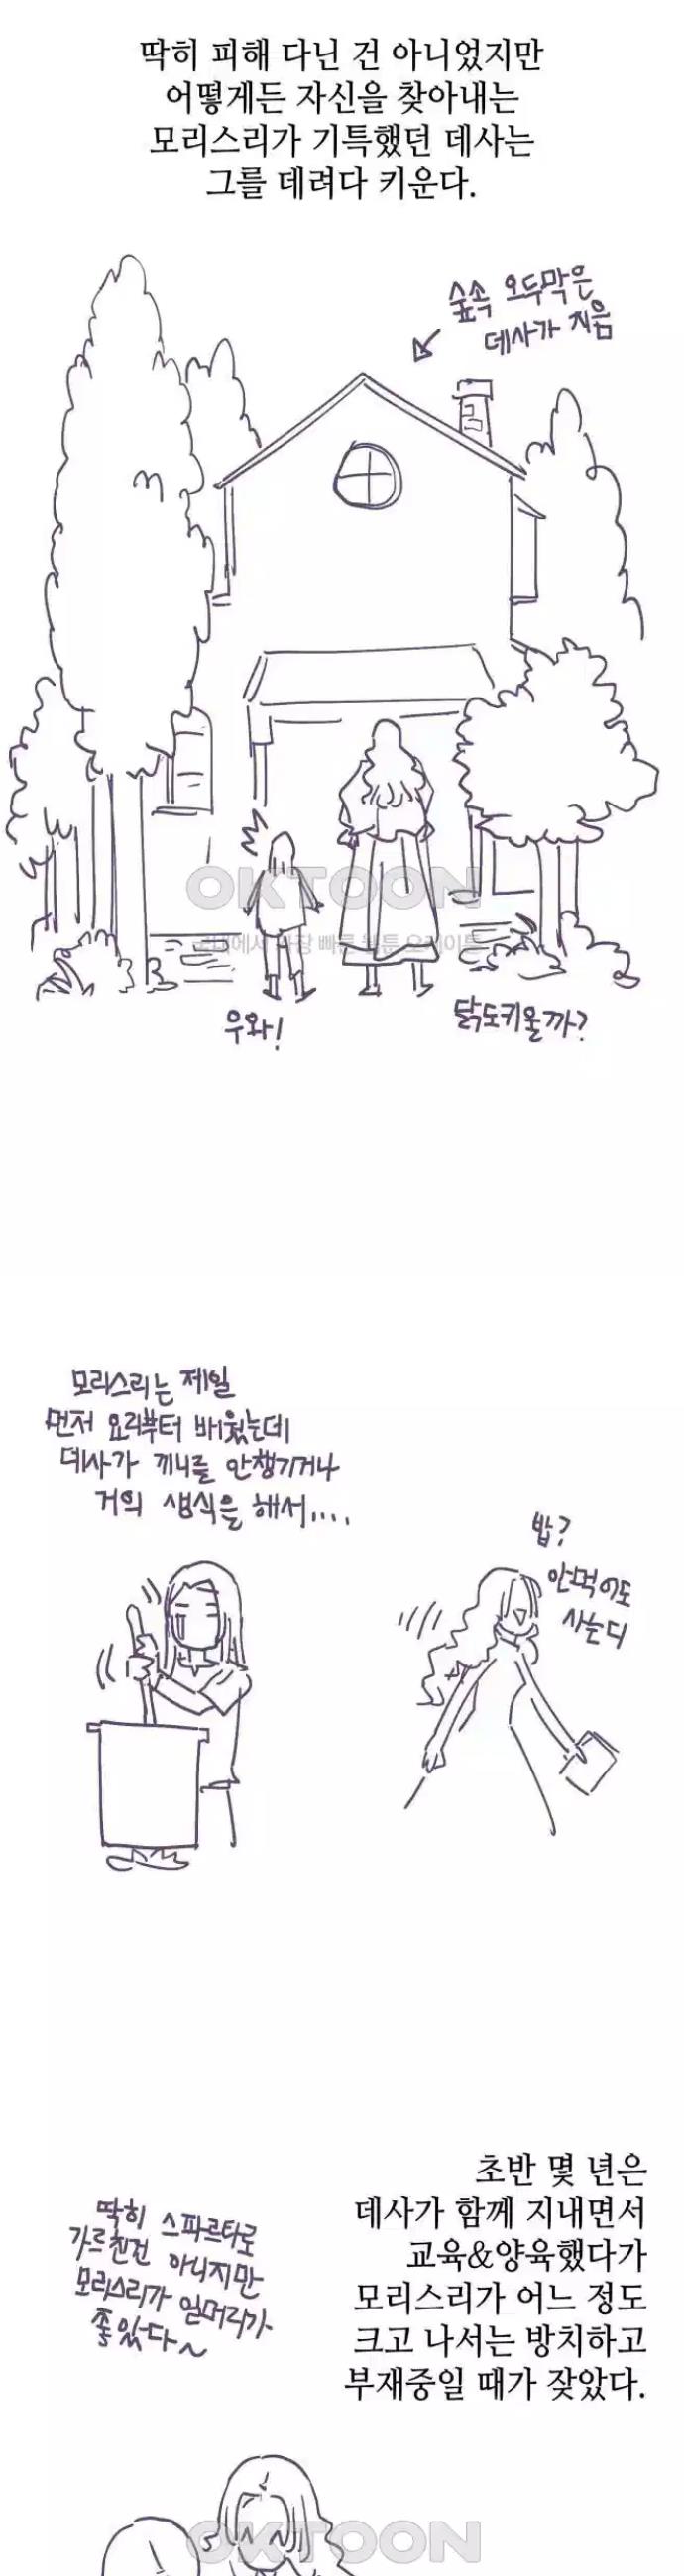 딱히 피해 다닌 건 아니었지만
어떻게든 자신을 찾아내는
모리스리가 기특했던 데사는
그를 데려다 키운다.
숲속 오두막은
데사가 지음
OKTOON
국내에서 가장 빠른 웹툰 업데이트
우와!
닭도키울까?
모리스리는 제일
먼저 요리부터 배웠는데
데사가 끼니를 안챙기거나
거의 생식을 해서....
밥?
안먹어도
사는디
초반 몇 년은
데사가 함께 지내면서
교육&양육했다가
모리스리가 어느 정도
크고 나서는 방치하고
부재중일 때가 잦았다.
딱히 스파르타로
가르친건 아니지만
모리스리가 일머리가
좋았다~
OKTOON